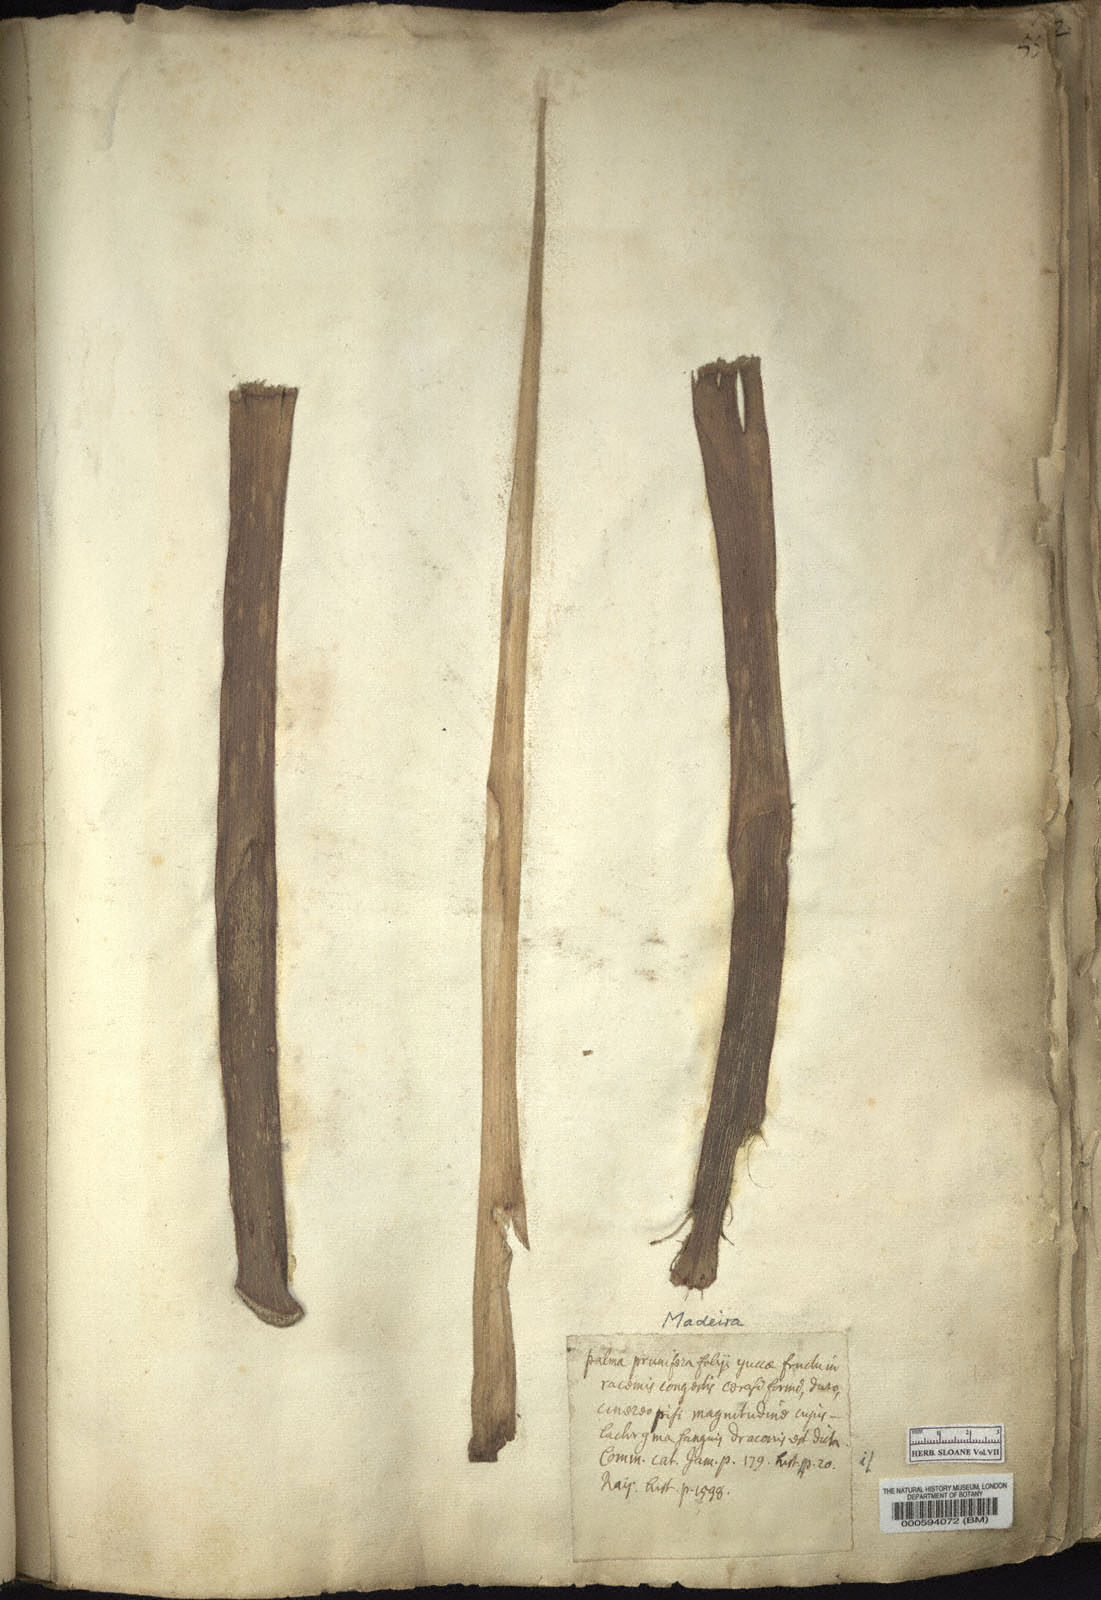 Madeira
palma prunifera folijs yuccæ fructu in
racemis congestis cerasi formi, duro,
cinereo pisi magnitudine cujus
lachryma sanguis draconis est dicta.
Comm. cat. Jam. p. 179. hist. p. 20.
Raij. hist. p. 1598.
HERB. SLOANE Vol. VII
THE NATURAL HISTORY MUSEUM, LONDON
DEPARTMENT OF BOTANY
000594072 (BM)